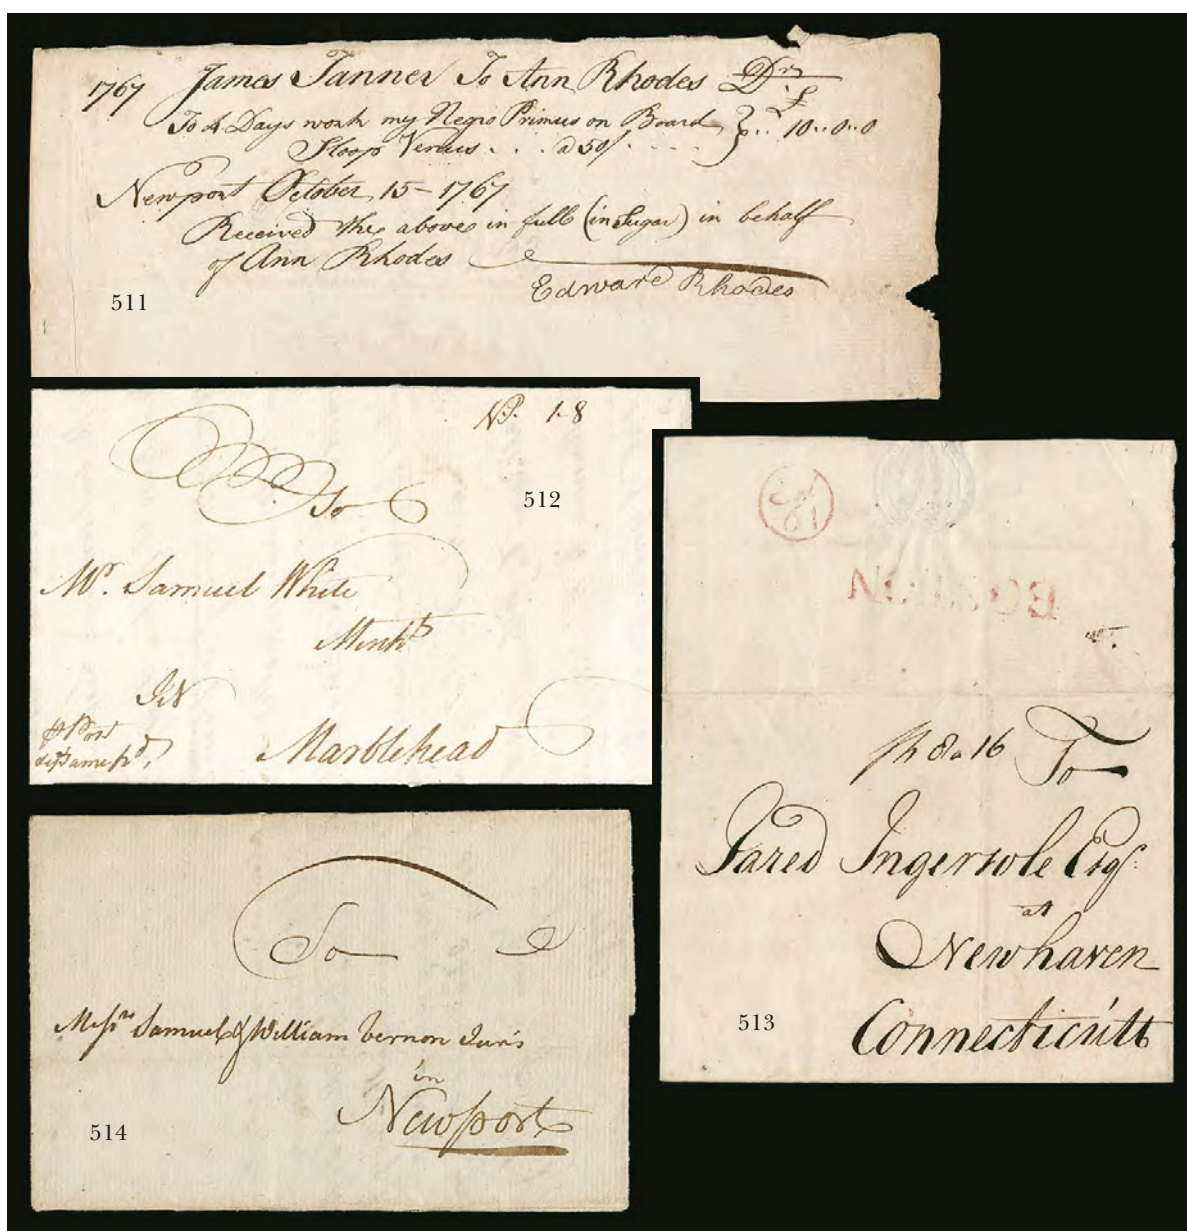 1767 James Tanner To Ann Rhodes Dr
£
To 4 Days work my Negro Primus on Board } .. 10..0..0
Sloop Venus . . . a 50/ . . . .
Newport October 15 - 1767
Received the above in full (in Sugar) in behalf
of Ann Rhodes
Edward Rhodes
511
NP. 1.8
To
512
Mr. Samuel White
Mercht
In
P Post
Marblehead
BOSTON
ph 8.16 To
Jared Ingersole Esqr.
at
Newhaven
Connecticutt
513
To
Messrs Samuel & William Vernon
in
Newport
514